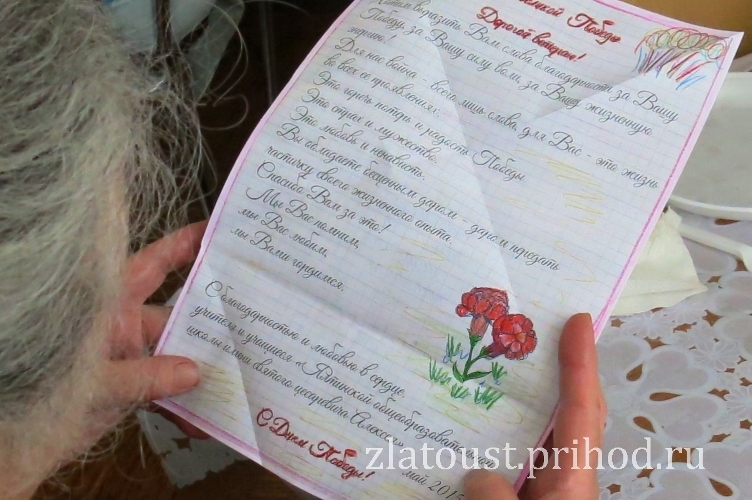 Великой Победы
Дорогой ветеран!
Хотим выразить Вам слова благодарности за Вашу
Победу, за Вашу силу воли, за Вашу жизненную
энергию!
Для нас война - всего лишь слова, для Вас - это жизнь
во всех её проявлениях:
Это горечь потерь и радость Победы
Это страх и мужество,
Это любовь и ненависть.
Вы обладаете бесценным даром - даром передать
частичку своего жизненного опыта.
Спасибо Вам за это!
Мы Вас помним,
мы Вас любим,
мы Вами гордимся.
С благодарностью и любовью в сердце,
учителя и учащиеся «Ялтинской общеобразовательной
школы имени святого цесаревича Алексея»
май 2015
С Днем Победы!
zlatoust.prihod.ru